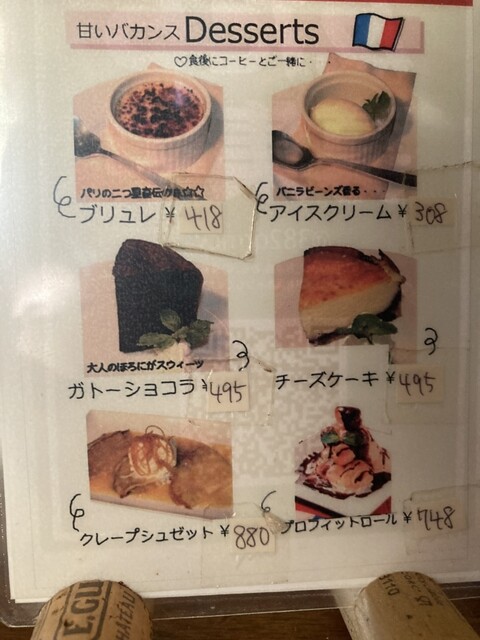 甘いバカンス Desserts
♡食後にコーヒーとご一緒に・・・・
パリの二つ星直伝の味☆☆
ブリュレ ¥418
バニラビーンズ香る・・・
アイスクリーム ¥308
大人のほろにがスウィーツ
ガトーショコラ ¥495
チーズケーキ ¥495
クレープシュゼット ¥880
プロフィットロール ¥748
E.GU
CHATEAU